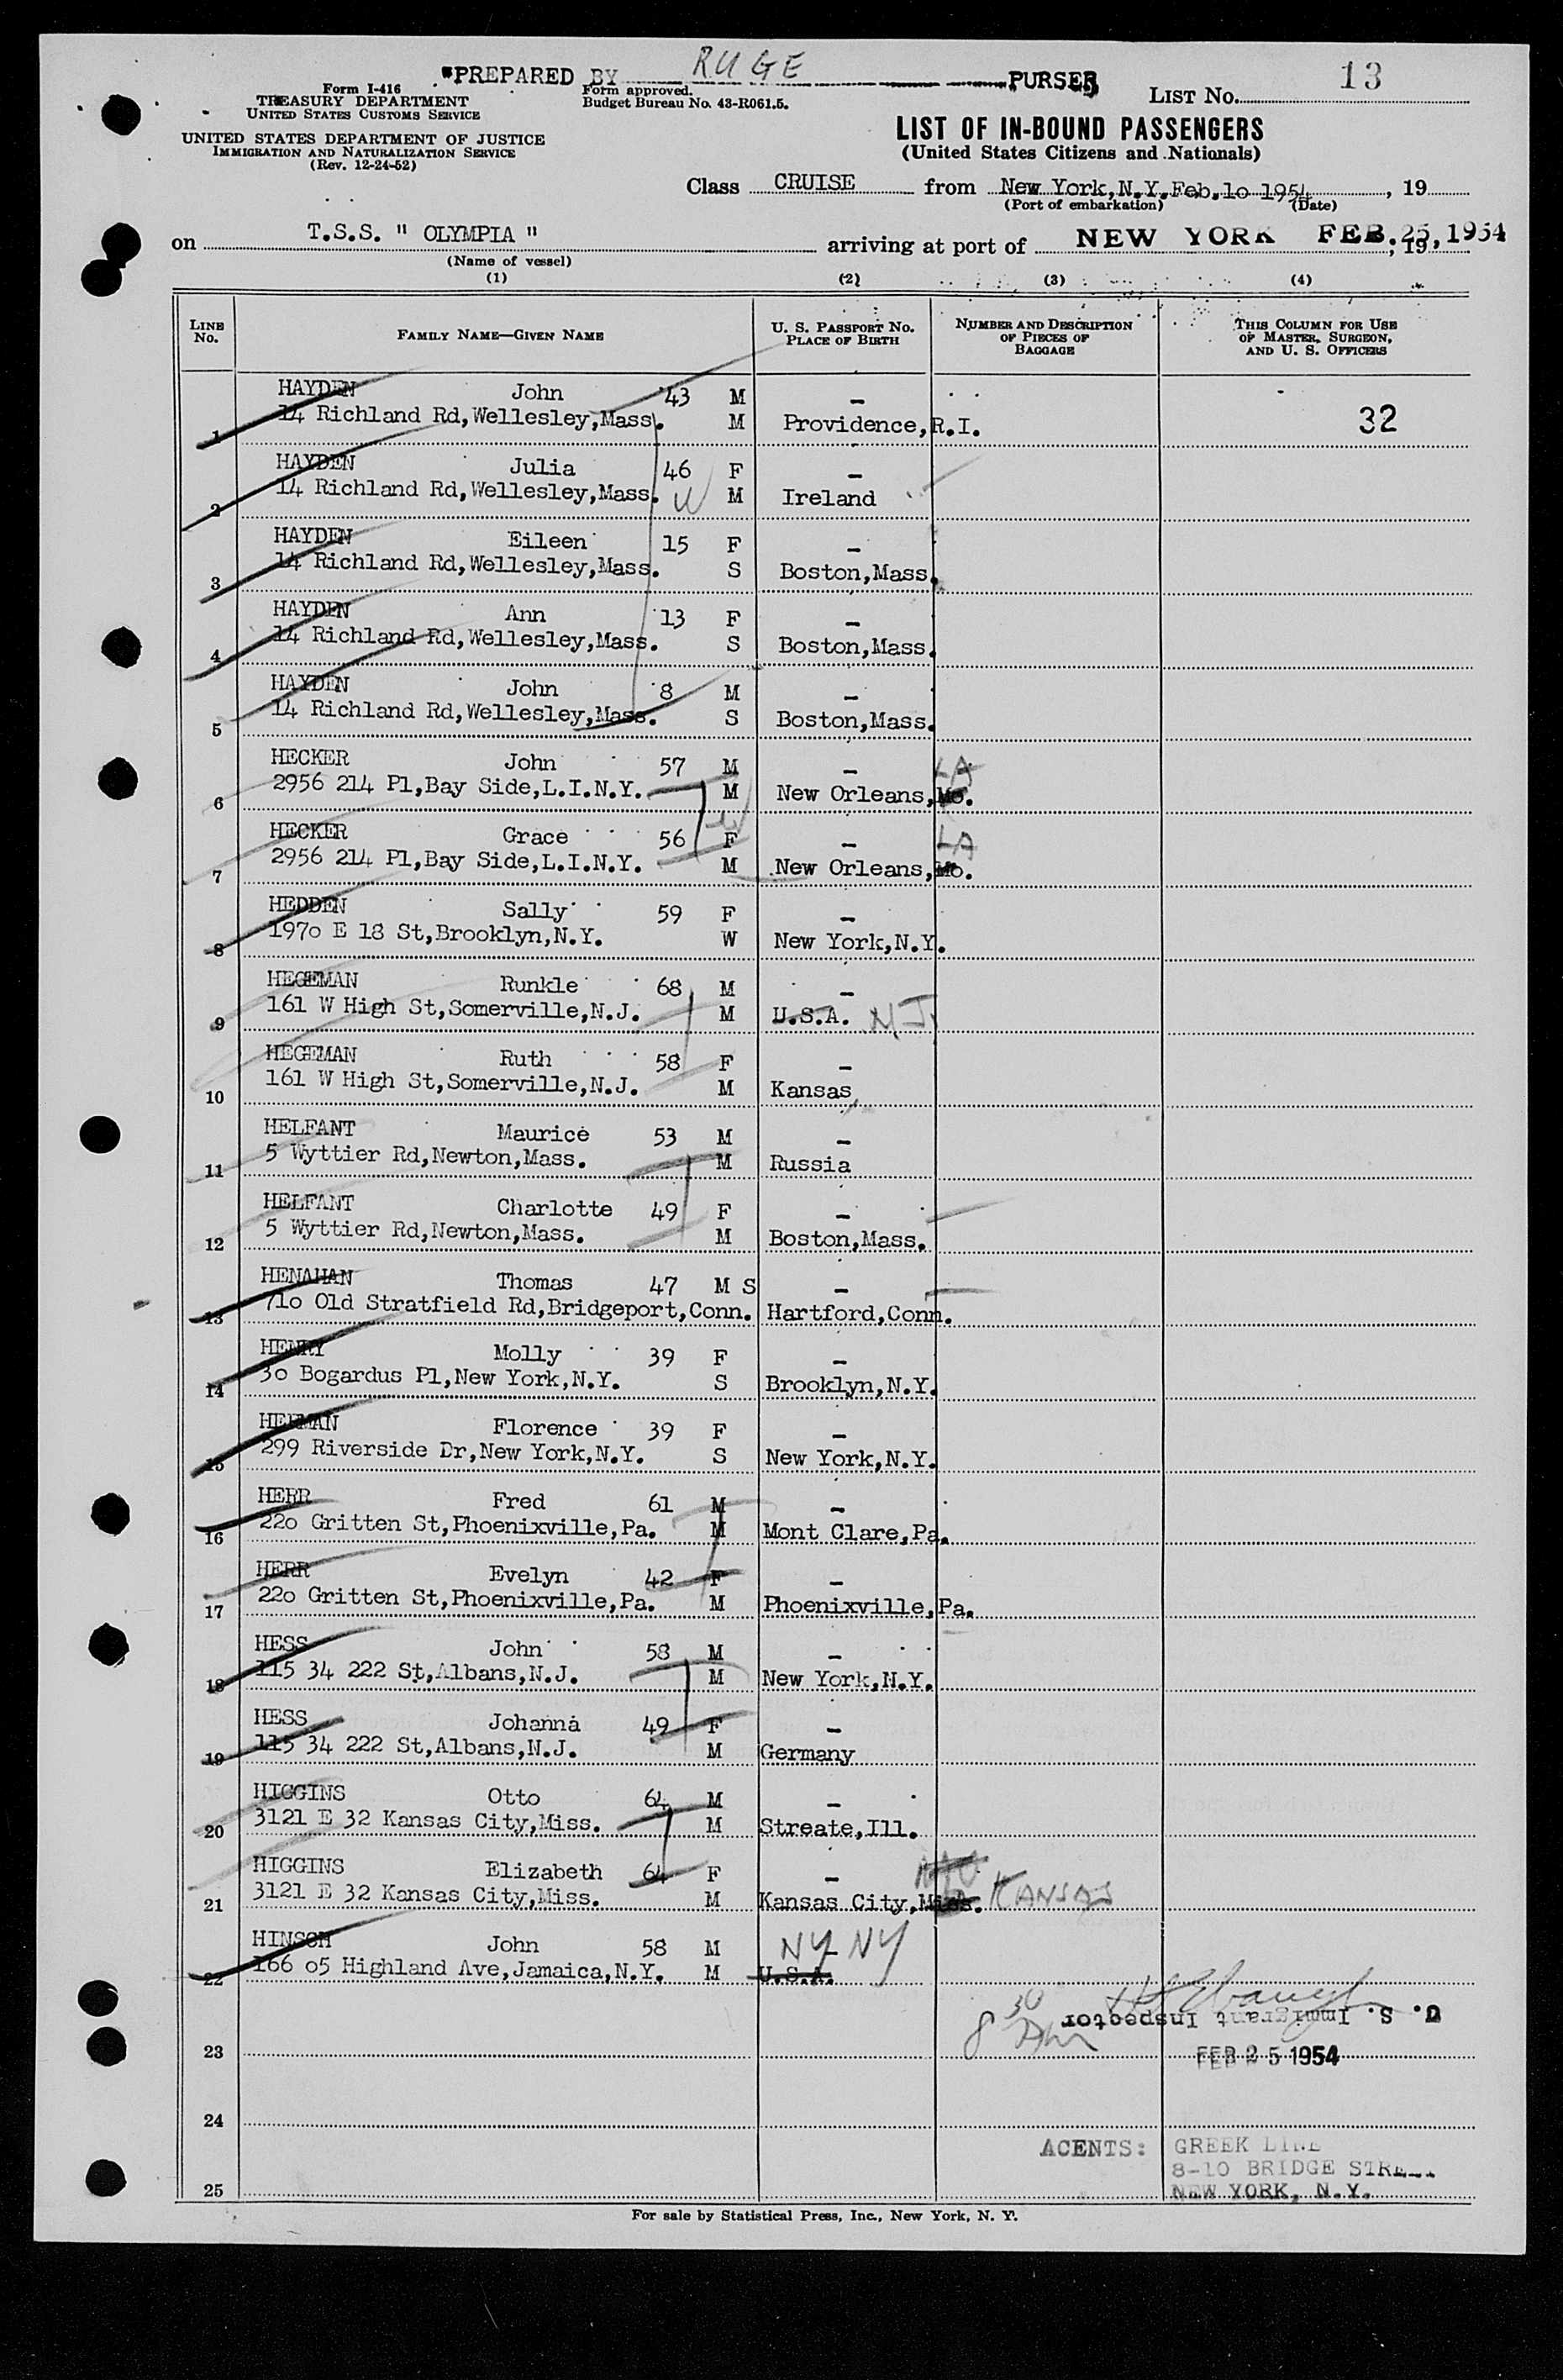 *PREPARED BY RUGE PURSER
Form I-416
TREASURY DEPARTMENT
UNITED STATES CUSTOMS SERVICE
Form approved.
Budget Bureau No. 43-R061.5.
LIST No. 13
UNITED STATES DEPARTMENT OF JUSTICE
IMMIGRATION AND NATURALIZATION SERVICE
(Rev. 12-24-52)
LIST OF IN-BOUND PASSENGERS
(United States Citizens and Nationals)
Class CRUISE from New York,N.Y.Feb.1o 1954, 19
(Port of embarkation) (Date)
on T.S.S. " OLYMPIA " arriving at port of NEW YORK FEB. 25, 1954, 19
(Name of vessel)
(1) (2) (3) (4)
LINE No. FAMILY NAME—GIVEN NAME U. S. PASSPORT NO. PLACE OF BIRTH NUMBER AND DESCRIPTION OF PIECES OF BAGGAGE THIS COLUMN FOR USE OF MASTER, SURGEON, AND U. S. OFFICERS
HAYDEN John 43 M –
1 14 Richland Rd,Wellesley,Mass. M Providence,R.I. 32
HAYDEN Julia 46 F –
2 14 Richland Rd,Wellesley,Mass. W M Ireland
HAYDEN Eileen 15 F –
3 14 Richland Rd,Wellesley,Mass. S Boston,Mass.
HAYDEN Ann 13 F –
4 14 Richland Rd,Wellesley,Mass. S Boston,Mass.
HAYDEN John 8 M –
5 14 Richland Rd,Wellesley,Mass. S Boston,Mass.
HECKER John 57 M – LA
6 2956 214 Pl,Bay Side,L.I.N.Y. M New Orleans,Mo.
HECKER Grace 56 W F – LA
7 2956 214 Pl,Bay Side,L.I.N.Y. M New Orleans,Mo.
HEDDEN Sally 59 F –
8 197o E 18 St,Brooklyn,N.Y. W New York,N.Y.
HEGEMAN Runkle 68 M –
9 161 W High St,Somerville,N.J. M U.S.A. N.J.
HEGEMAN Ruth 58 F –
10 161 W High St,Somerville,N.J. M Kansas
HELFANT Maurice 53 M –
11 5 Wyttier Rd,Newton,Mass. M Russia
HELFANT Charlotte 49 F –
12 5 Wyttier Rd,Newton,Mass. M Boston,Mass.
HENAHAN Thomas 47 M S –
13 71o Old Stratfield Rd,Bridgeport,Conn. Hartford,Conn.
HENRY Molly 39 F –
14 3o Bogardus Pl,New York,N.Y. S Brooklyn,N.Y.
HERMAN Florence 39 F –
15 299 Riverside Dr,New York,N.Y. S New York,N.Y.
HERR Fred 61 M –
16 22o Gritten St,Phoenixville,Pa. M Mont Clare,Pa.
HERR Evelyn 42 F –
17 22o Gritten St,Phoenixville,Pa. M Phoenixville,Pa.
HESS John 58 M –
18 115 34 222 St,Albans,N.J. M New York,N.Y.
HESS Johanna 49 F –
19 115 34 222 St,Albans,N.J. M Germany
HIGGINS Otto 64 M –
20 3121 E 32 Kansas City,Miss. M Streate,Ill.
HIGGINS Elizabeth 64 F –
21 3121 E 32 Kansas City,Miss. M Kansas City,Miss. KANSAS
HINSCH John 58 M – NY NY
22 166 o5 Highland Ave,Jamaica,N.Y. M U.S.A.
U. S. Immigrant Inspector
8 30 AM
23 FEB 25 1954
24
AGENTS: GREEK LINE
8-10 BRIDGE STREET
25 NEW YORK, N.Y.
For sale by Statistical Press, Inc., New York, N. Y.